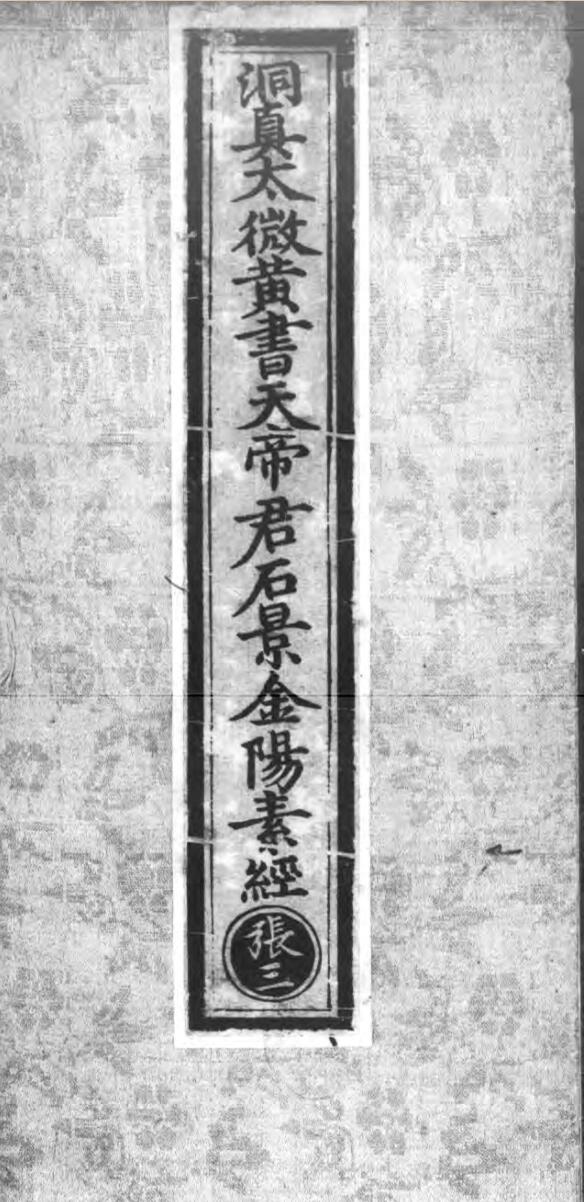 洞真太微黄書天帝君石景金陽素經
張三